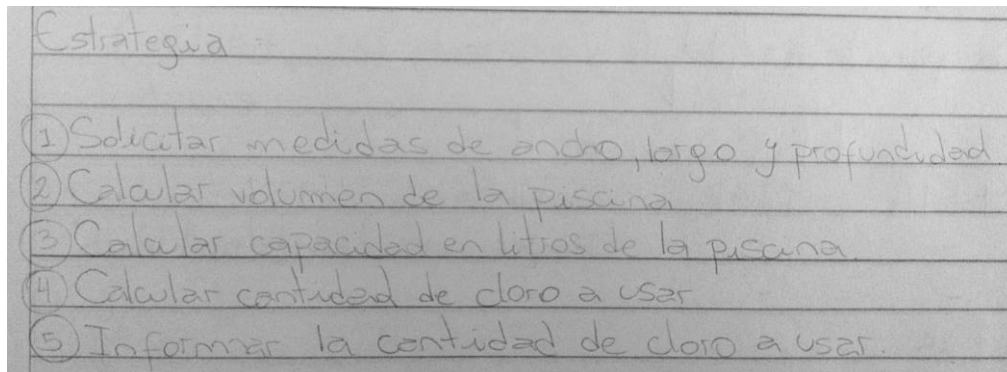 Estrategia
① Solicitar medidas de ancho, largo y profundidad.
② Calcular volumen de la piscina
③ Calcular capacidad en litros de la piscina.
④ Calcular cantidad de cloro a usar
⑤ Informar la cantidad de cloro a usar.